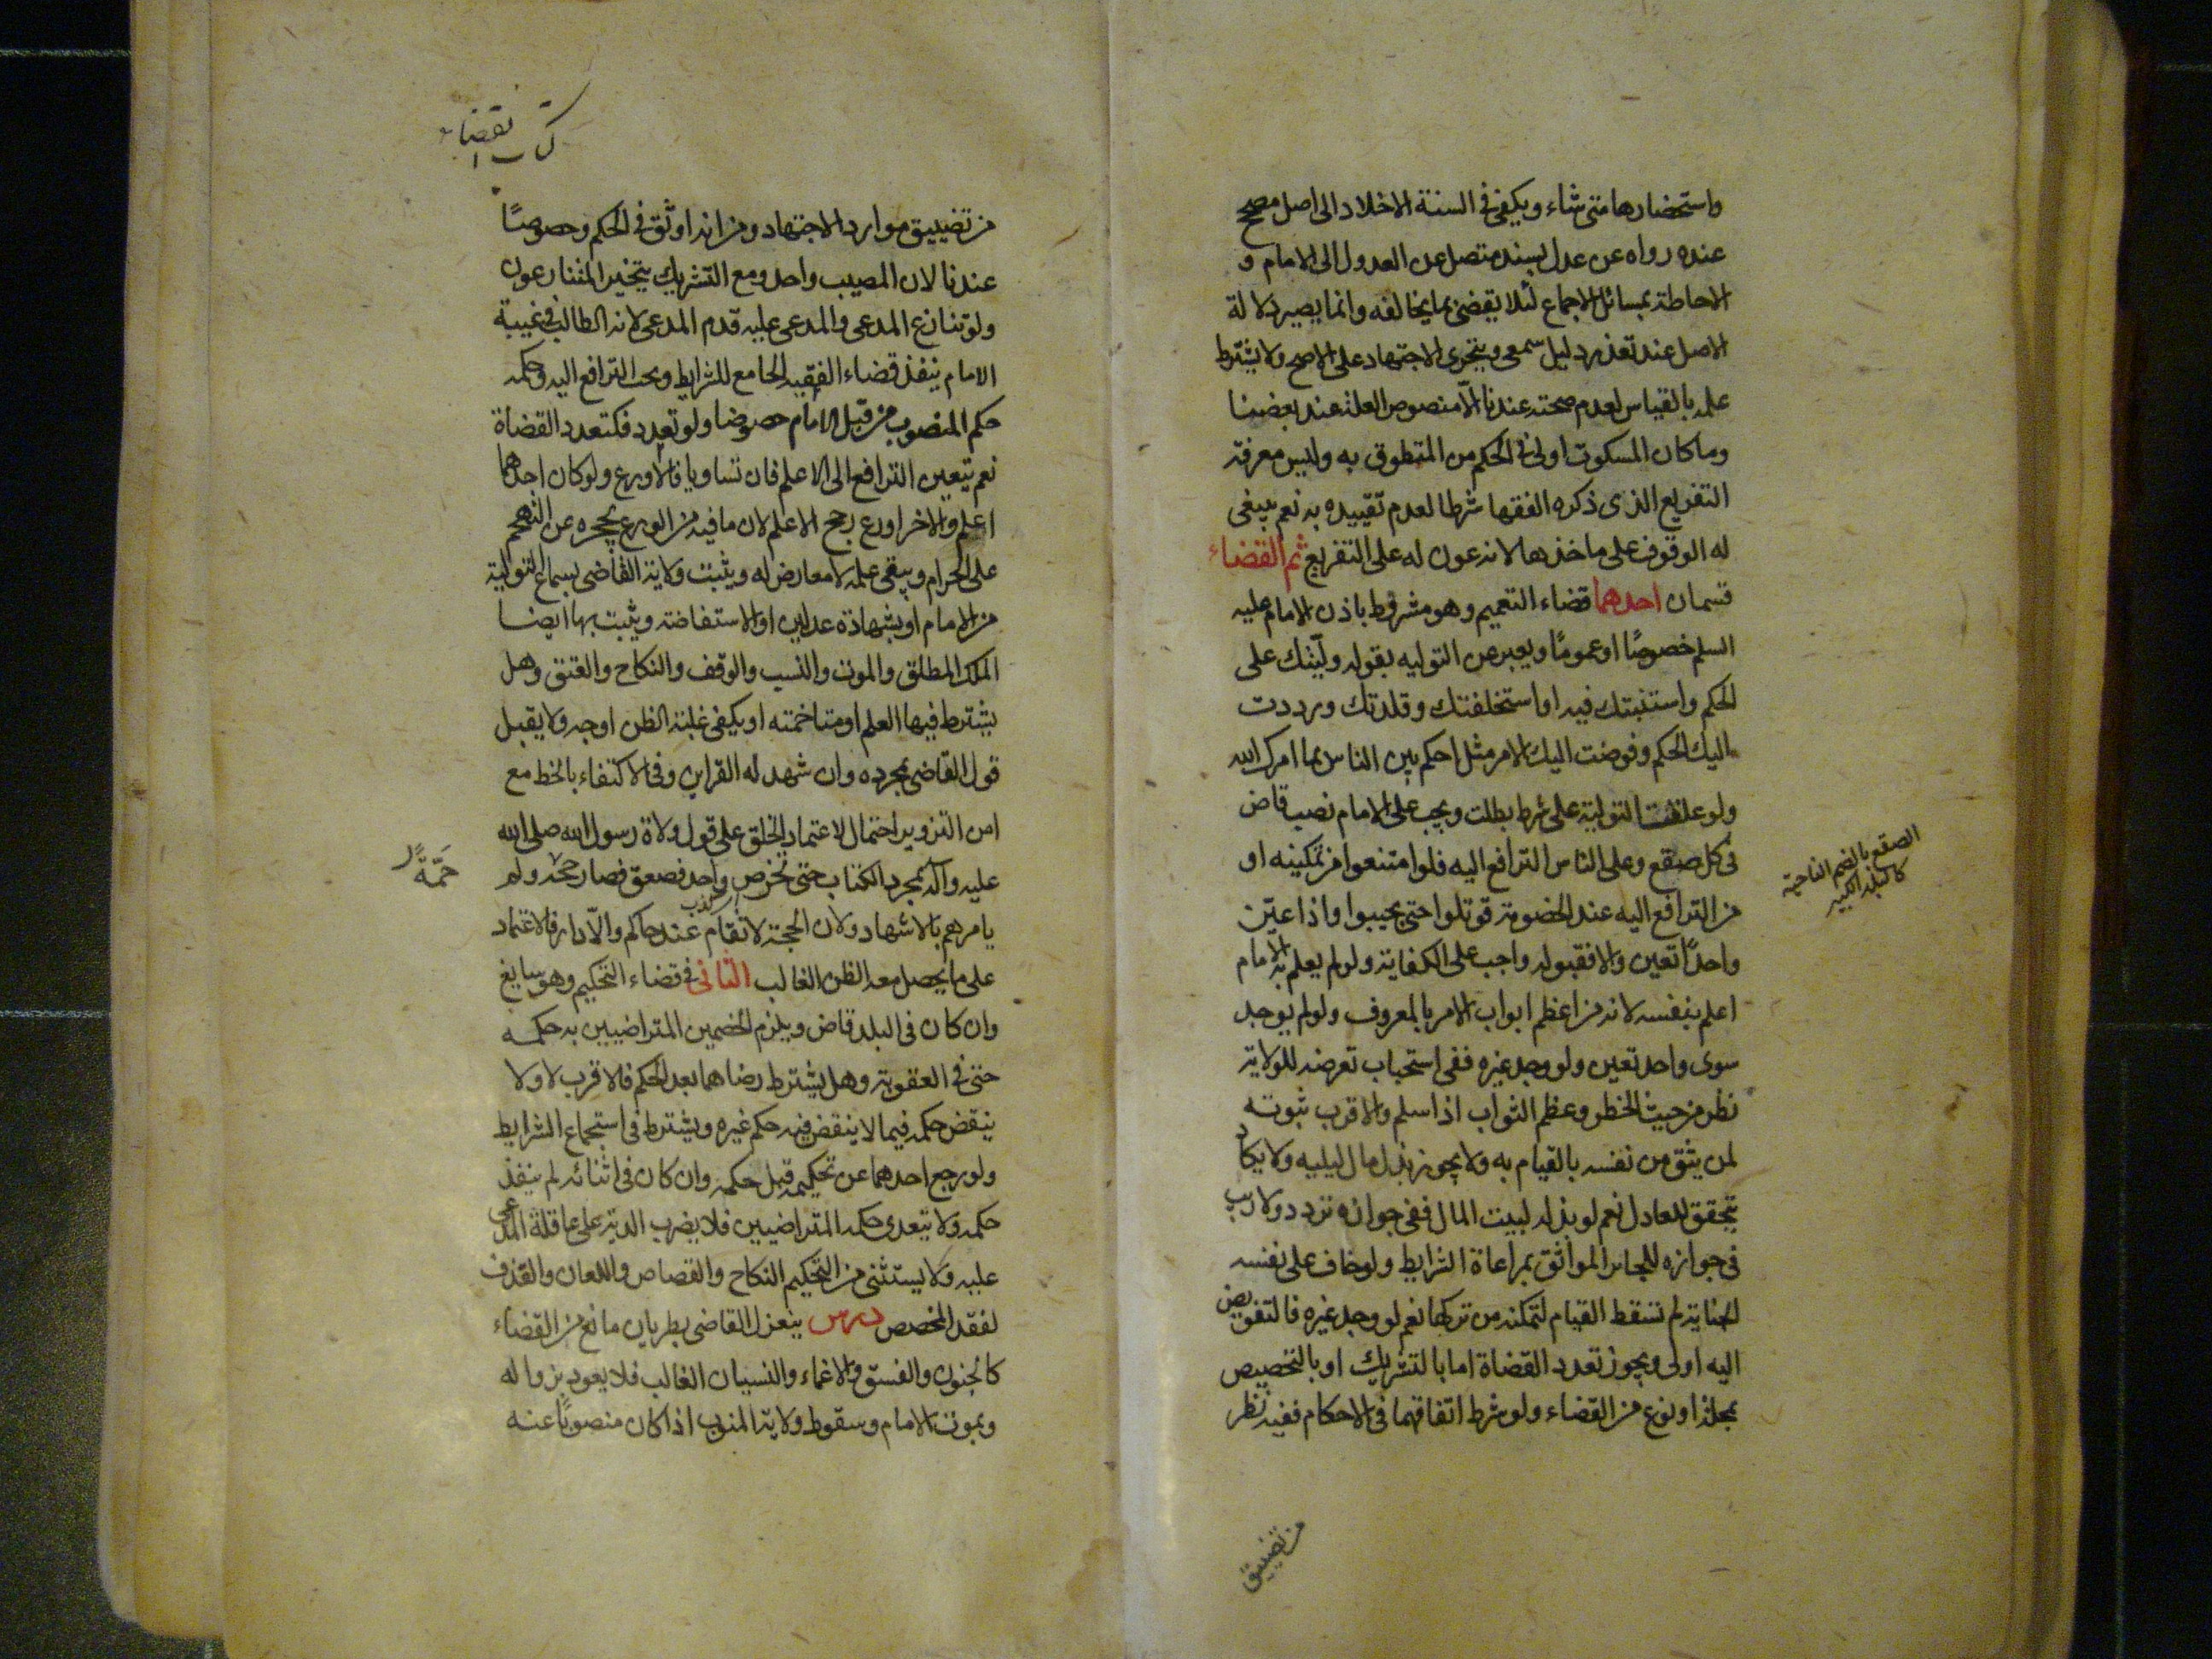 واستحضارها متى شاء ويكفى فى السنة الاخلاد الى اصل مصحح
عنده رواه عن عدل بسند متصل عن العدول الى الامام و
الاحاطة بمسائل الاجماع لئلا يقضى بما يخالفه وانما يصير دلالة
الاصل عند تعذر دليل سمعى ويتجزى الاجتهاد على الاصح ولا يشترط
علمه بالقياس لعدم صحته عندنا الّا منصوص العلة عند بعضنا
وما كان المسكوت اولى فى الحكم من المنطوق به وليس معرفة
التفريع الذى ذكره الفقها شرطا لعدم تقييده به نعم ينبغى
له الوقوف على ماخذها لانه عون له على التفريع ثم القضاء
قسمان احدهما قضاء التعميم وهو مشروط باذن الامام عليه
السلم خصوصًا او عمومًا ويعبر عن التوليه بقوله ولّيتك على
الحكم واستنبتك فيه او استخلفتك وقلدتك ورددت
اليك الحكم وفوضت اليك الامر مثل احكم بين الناس بما امرك الله
ولو علقت التولية على شرط بطلت ويجب على الامام نصب قاض
فى كل صقع وعلى الناس الترافع اليه فلو امتنعوا من تمكينه او
من الترافع اليه عند الخصومة قوتلوا حتى يجيبوا واذا عيّن
واحدًا تعين والا فقبوله واجب على الكفاية ولو لم يعلم به الامام
اعلم بنفسه لانه من اعظم ابواب الامر بالمعروف ولو لم يوجد
سوى واحد تعين ولو وجد غيره ففى استحباب تعرضه للولاية
نظر من حيث الخطر وعظم الثواب اذا سلم والاقرب ثبوته
لمن يثق من نفسه بالقيام به ولا يجوز بذل مال ليليه ولا يكاد
يتحقق للعادل نعم لو بذله لبيت المال ففى جوازه تردد ولا ريب
فى جوازه للجائر الموافق بمراعاة الشرايط ولو خاف على نفسه
لخنايته لم تسقط القيام لتمكنه من تركها نعم لو وجد غيره فالتفويض
اليه اولى ويجوز تعدد القضاة اما بالتشريك او بالتخصيص
بمحلة او نوع من القضاء ولو شرط اتفاقهما فى الاحكام ففيه نظر
الصقع بالضم الناحية
كالبلد الكبير
من تضييق
كتاب القضاء
من تضييق موارد الاجتهاد ومن انه اوثق فى الحكم وخصوصًا
عندنا لان المصيب واحد ومع التشريك يتخير المتنازعون
ولو تنازع المدعى والمدعى عليه قدم المدعى لانه الطالب فى غيبة
الامام ينفذ قضاء الفقيه الجامع للشرايط ويجب الترافع اليه وحكمه
حكم المنصوب من قبل الامام خصوصا ولو تعدد فكتعدد القضاة
نعم يتعين الترافع الى الاعلم فان تساويا فالاورع ولو كان احدهما
اعلم والاخر اورع رجح الاعلم لان ما فيه من الورع يحجره عن التهجم
على الحرام ويبقى علمه لا معارض له ويثبت ولاية القاضى بسماع التولية
من الامام او بشهادة عدلين او الاستفاضة ويثبت بها ايضا
الملك المطلق والموت والنسب والوقف والنكاح والعتق وهل
يشترط فيها العلم او متاخمته او يكفى غلبة الظن اوجه ولا يقبل
قول القاضى بمجرده وان شهد له القراين وفى الاكتفاء بالخط مع
امن التزوير احتمال لاعتماد الخلق على قول ولاة رسول الله صلى الله
عليه وآله بمجرد الكتاب حتى تخرص واحد فصعق فصار حممة ولم
يامرهم بالاشهاد ولان الحجة لا تقام عند حاكم والّا دار فالاعتماد
على ما يحصل معه الظن الغالب الثانى فى قضاء التحكيم وهو سايغ
وان كان فى البلد قاض ويلزم الخصمين المتراضيين به حكمه
حتى فى العقوبة وهل يشترط رضاهما بعد الحكم فالاقرب لا ولا
ينقض حكمه فيما لا ينقض فيه حكم غيره ويشترط فى استجماع الشرايط
ولو رجع احدهما عن تحكيمه قبل حكمه وان كان فى اثنائه لم ينفذ
حكمه ولا يتعدى حكمه المتراضيين فلا يضرب الدية على عاقلة المدعى
عليه ولا يستثنى من التحكيم النكاح والقصاص واللعان والقذف
لفقد المخصص درس ينعزل القاضى بطريان مانع من القضاء
كالجنون والفسق والاغماء والنسيان الغالب فلا يعود بزواله
وبموت الامام وسقوط ولاية المنوب اذا كان منصوبًا عنه